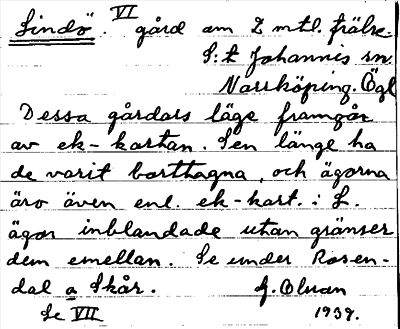 Lindö. VI gård om 2 mtl. frälse.
S:t Johannis sn.
Norrköping. Ögl
Dessa gårdars läge framgår
av ek-kartan. Sen länge ha
de varit borttagna, och ägorna
äro även enl. ek-kart. i L.
ägor inblandade utan gränser
dem emellan. Se under Rosen-
dal a Skår. G. Olsson
Se VII 1939.